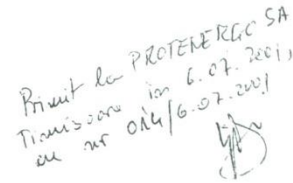 Primit la PROTENERGO SA
Timisoara in 6.07.2001,
cu nr 014/6.07.2001